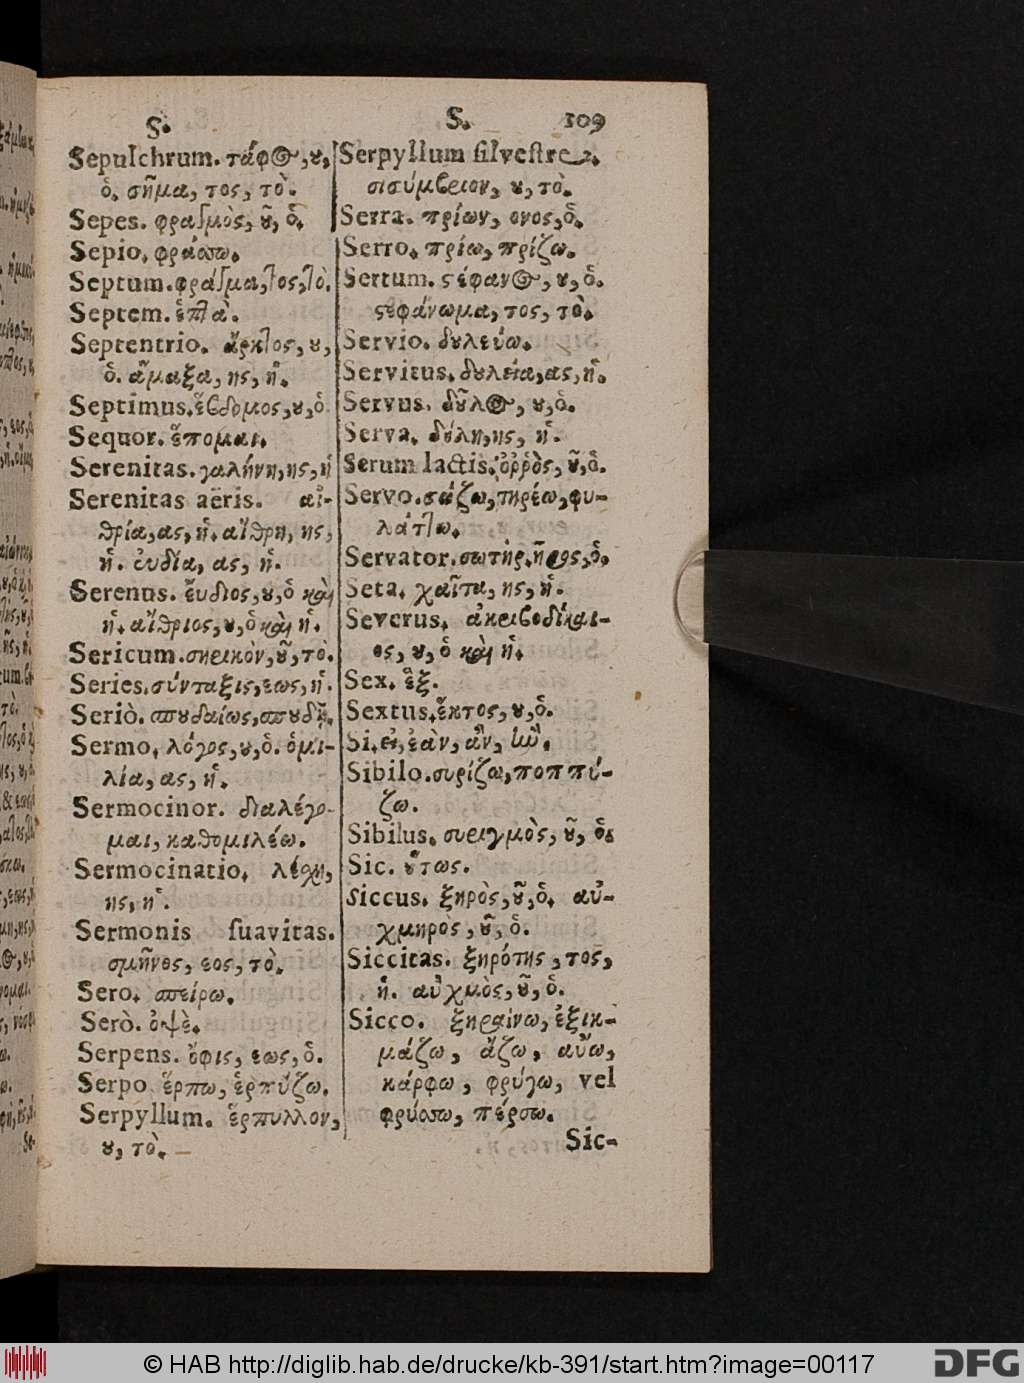 S.
Sepulchrum. τάφος, ȣ,
ὁ. σῆμα, τος, τὸ.
Sepes. φραγμὸς, ȣ͂, ὁ.
Sepio. φράσσω.
Septum. φράγμα, τος, τὸ.
Septem. ἑπτὰ.
Septentrio. ἄρκτος, ȣ,
ὁ. ἅμαξα, ης, ἡ.
Septimus. ἕβδομος, ȣ, ὁ
Sequor. ἕπομαι.
Serenitas. γαλήνη, ης, ἡ
Serenitas aëris. αἰ-
θρία, ας, ἡ. αἴθρη, ης,
ἡ. εὐδία, ας, ἡ.
Serenus. εὔδιος, ȣ, ὁ καὶ
ἡ. αἴθριος, ȣ, ὁ καὶ ἡ.
Sericum. σηρικὸν, ȣ͂, τὸ.
Series. σύνταξις, εως, ἡ.
Seriò. σπȣδαίως, σπȣδῇ.
Sermo. λόγος, ȣ, ὁ. ὁμι-
λία, ας, ἡ.
Sermocinor. διαλέγο-
μαι, καθομιλέω.
Sermocinatio. λέσχη,
ης, ἡ.
Sermonis suavitas.
σμῆνος, εος, τὸ.
Sero. σπείρω.
Serò. ὀψὲ.
Serpens. ὄφις, εως, ὁ.
Serpo. ἕρπω, ἑρπύζω.
Serpyllum. ἕρπυλλον,
ȣ, τὸ.
S. 109
Serpyllum silvestre.
σισύμβριον, ȣ, τὸ.
Serra. πρίων, ονος, ὁ.
Serro. πρίω, πρίζω.
Sertum. ϛέφανος, ȣ, ὁ.
ϛεφάνωμα, τος, τὸ.
Servio. δȣλεύω.
Servitus. δȣλεία, ας, ἡ.
Servus. δȣ͂λος, ȣ, ὁ.
Serva. δȣ́λη, ης, ἡ.
Serum lactis. ὀῤῥὸς, ȣ͂, ὁ.
Servo. σώζω, τηρέω, φυ-
λάττω.
Servator. σωτὴρ, ῆρος, ὁ.
Seta. χαῖτα, ης, ἡ.
Severus. ἀκριβοδίκαι-
ος, ȣ, ὁ καὶ ἡ.
Sex. ἓξ.
Sextus. ἕκτος, ȣ, ὁ.
Si. εἰ, ἐὰν, ἂν, ἢν.
Sibilo. συρίζω, ποππύ-
ζω.
Sibilus. συριγμὸς, ȣ͂, ὁ.
Sic. ȣ̔́τως.
Siccus. ξηρὸς, ȣ͂, ὁ. αὐ-
χμηρὸς, ȣ͂, ὁ.
Siccitas. ξηρότης, τος,
ἡ. αὐχμὸς, ȣ͂, ὁ.
Sicco. ξηραίνω, ἐξικ-
μάζω, ἄζω, αὔω,
κάρφω, φρύγω, vel
φρύσσω, πέρσω.
Sic-
© HAB http://diglib.hab.de/drucke/kb-391/start.htm?image=00117
DFG